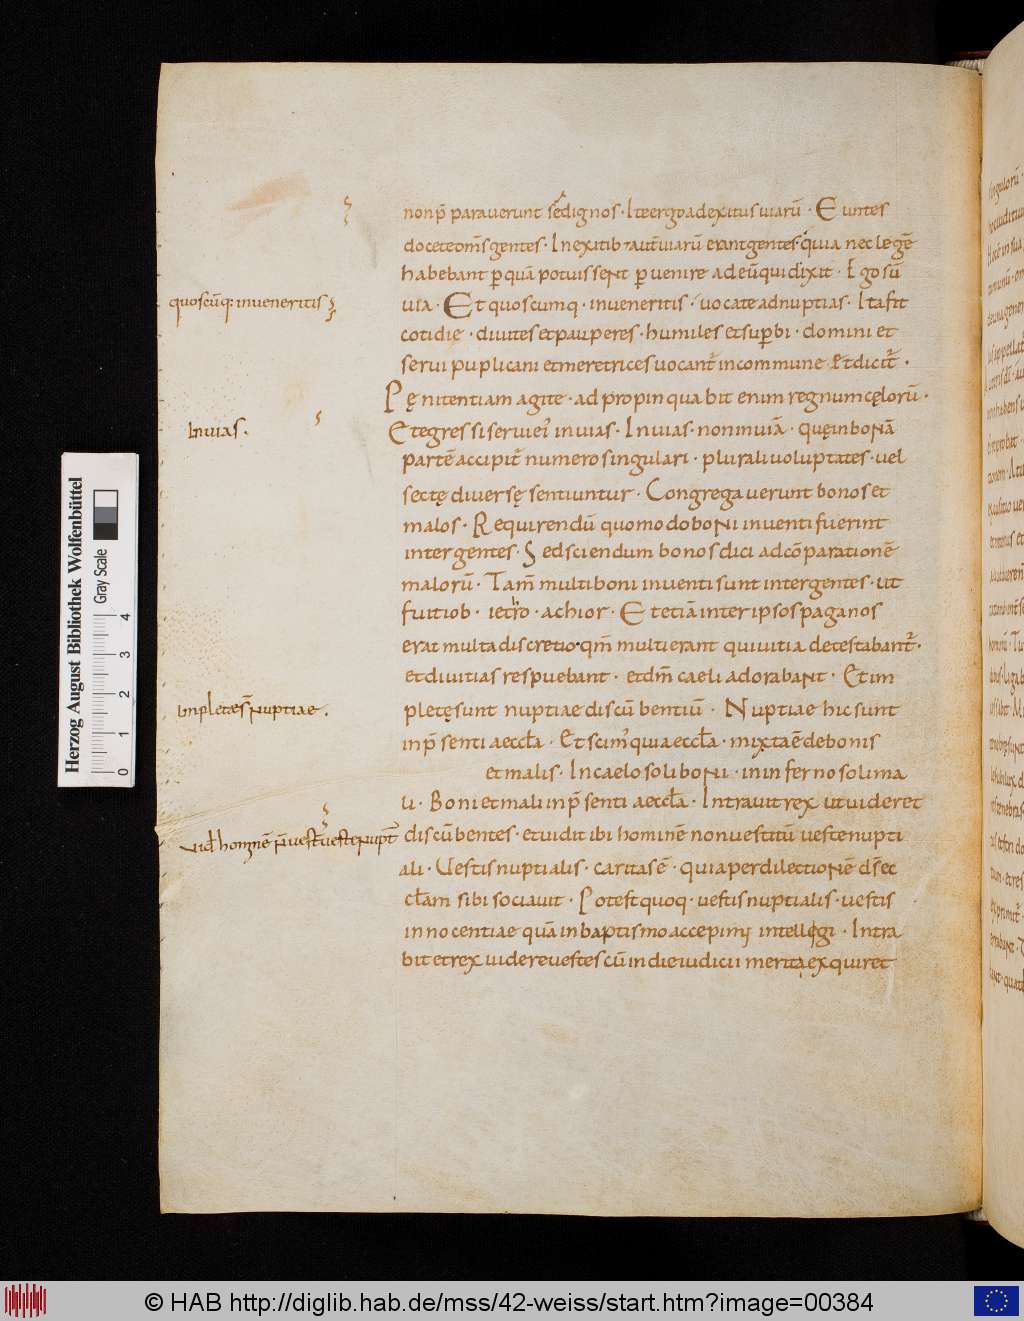 nonp̄ paraverunt se dignos · Iteergoadexitus viarū · Euntes
doceteom̄sgentes · Inexitib· aut̄ viarū erantgentes · quia neclegē
habebant ꝑquā potuissent ꝑvenire adeū qui dixit · Ego sū
via · Et quoscumq· inveneritis · vocateadnuptias · Itafit
quoscūq· inveneritis
cotidie · divites et pauperes · humiles et suꝑbi · domini et
servi puplicani et meretrices vocant̄ incommune Et dicit̄ ·
Pęnitentiam agite · ad propinquabit enim regnum cęlorū ·
Et egressi servi ei᷒ in vias · In vias · non in viā · quę in bonā
In vias ·
partē accipit̄ numero singulari · plurali voluptates · vel
sectę diversę sentiuntur · Congregaverunt bonos et
malos · Requirendū quomodo boni inventi fuerint
inter gentes · Sed sciendum bonos dici ad cōparationē
malorū · Tam̄ multi boni inventi sunt inter gentes · ut
fuit iob · iethro · achior · Et etiā inter ipsos paganos
erat multa discretio · qm̄ multi erant qui vitia detestabant̄ ·
et divitias respuebant · et dm̄ caeli adorabant · Et im
pletę sunt nuptiae discūbentiū · Nuptiae hic sunt
Inpletae s̄ nuptiae ·
in p̄senti aeccla · Et scim᷒ quia aeccla · mixta ē de bonis
et malis · In caelo soli boni · in inferno soli ma
li · Boni et mali in p̄senti aeccla · Intravit rex ut videret
discūbentes · et vidit ibi hominē non vestitū veste nupti
vid hominē n̄ vestit̄ veste nupt̄
ali · Vestis nuptialis · caritas ē · quia per dilectionē d̄s ec
clam sibi sociavit · Potest quoq· vestis nuptialis · vestis
innocentiae quā in baptismo accepim᷒ intellegi · Intra
bit et rex videre vestes cū in die iudicii merita exquiret
Herzog August Bibliothek Wolfenbüttel
Gray Scale
0 1 2 3 4
© HAB http://diglib.hab.de/mss/42-weiss/start.htm?image=00384